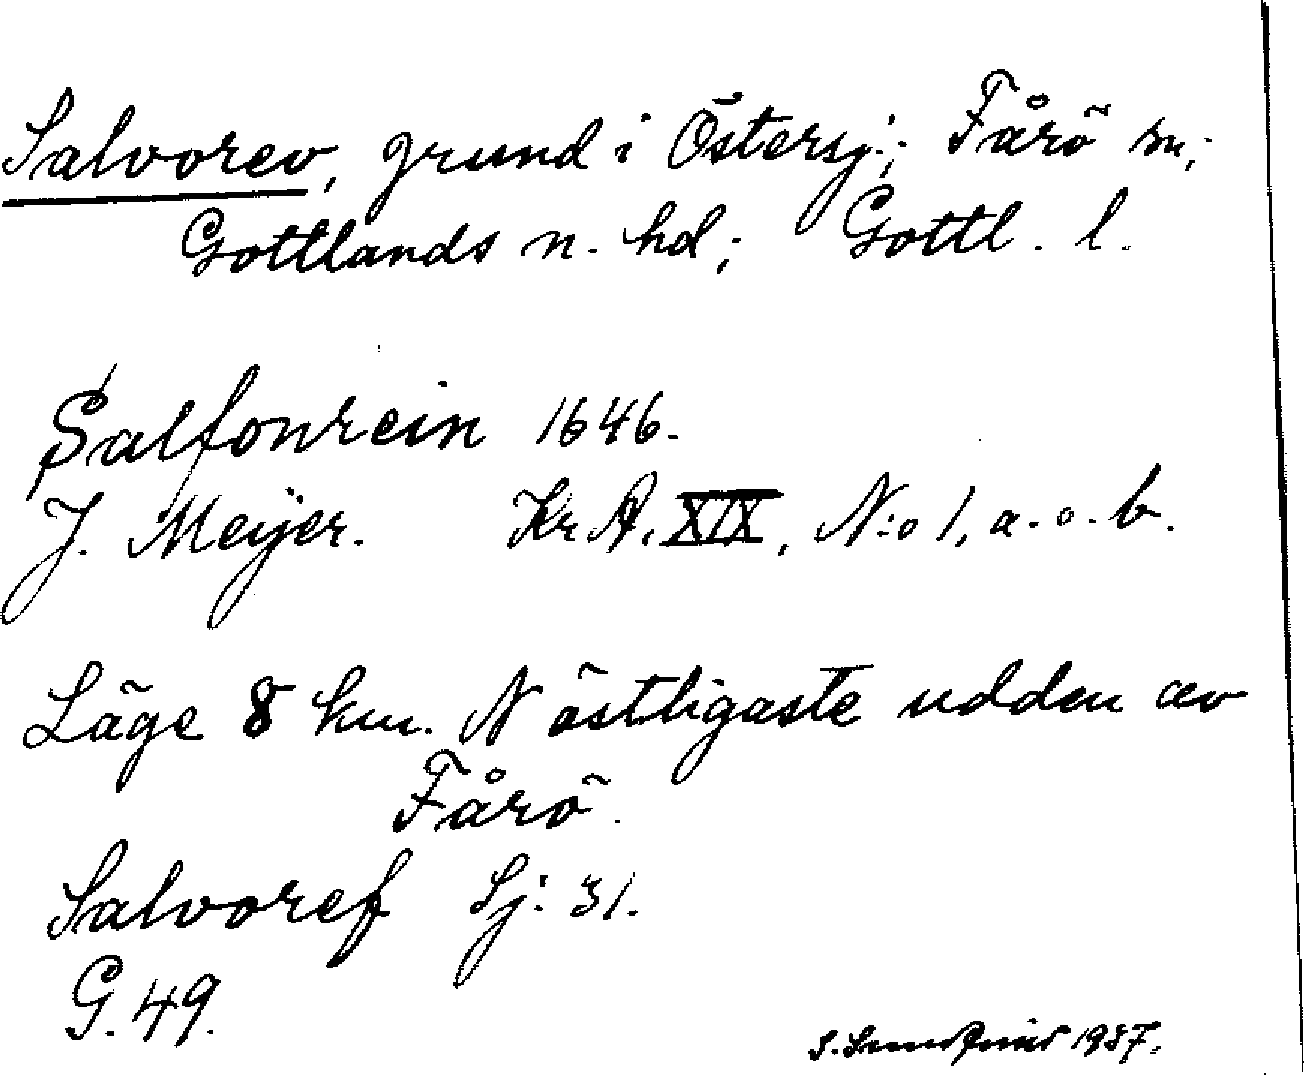 Salvorev, grund i Östersj:; Fårö sn;
Gottlands n. hd; Gottl. l.
Salfonrein 1646.
J. Meijer. Kr A. XIX, N:o 1, a. o. b.
Läge 8 km. N östligaste udden av
Fårö.
Salvoref Sj: 31.
G. 49.
S. 1937.